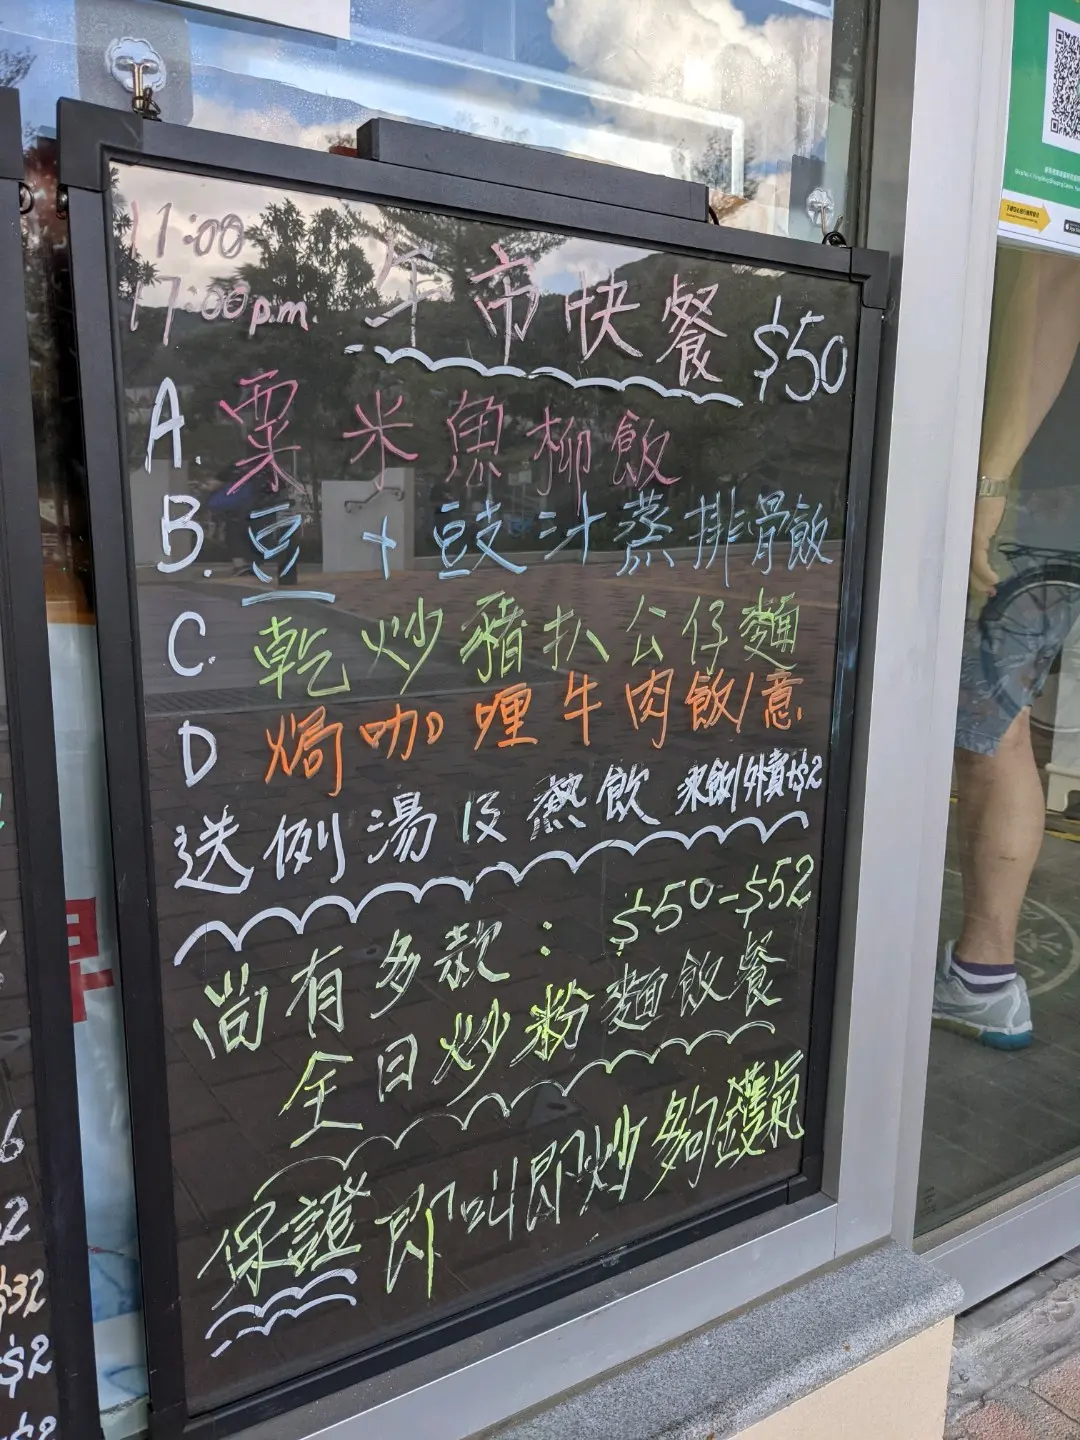 11:00
17:00p.m. 午市快餐 $50
A. 粟米魚柳飯
B. 豆+豉汁蒸排骨飯
C. 乾炒豬扒公仔麵
D 焗咖喱牛肉飯/意
送例湯及熱飲 來飯/外賣+$2
尚有多款: $50-$52
全日炒粉麵飯餐
保證即叫即炒夠鑊氣
6
2
$32
$2